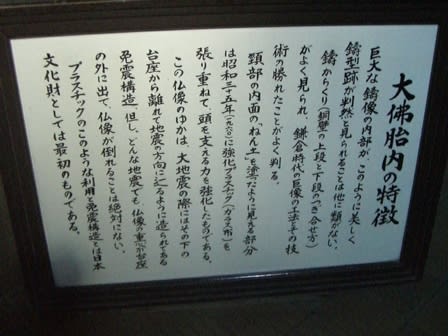 大佛胎内の特徴
巨大な鋳像の内部が、このように美しく
鋳型の跡が判然と見られることは他に類がない。
鋳からくり(銅壁の上段と下段のつぎ合せ方)
がよく見られ、鎌倉時代の巨像の工法とその技
術の勝れたことがよく判る。
頸部の内面の、ねん土を塗ったように見える部分
は昭和三十五年(一九六〇)に強化プラスチック(ガラス布)を
張り重ねて、頭を支える力を強化したものである。
この仏像のゆかは、大地震の際にはその下の
台座から離れて地震の方向に辷るように造られてある
免震構造。但し、どんな地震でも、仏像の重心が台座
の外に出て、仏像が倒れることは絶対にない。
プラスチックのこのような利用と免震構造とは日本
文化財としては最初のものである。